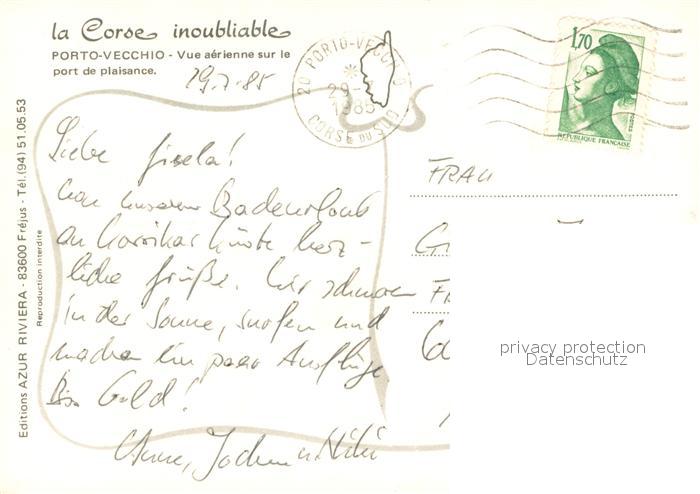 la Corse inoubliable
PORTO-VECCHIO - Vue aérienne sur le
port de plaisance.
29.7.85
20 PORTO-VECCHIO
29-7
1985
CORSE DU SUD
1,70
REPUBLIQUE FRANÇAISE
Liebe Gisela!
von unserem Badeurlaub
an Korsikas Küste herz-
liche Grüße. Wir schmoren
in der Sonne, surfen und
machen ein paar Ausflüge
Bis bald!
Jochen u.
FRAU
G
FR
privacy protection
Datenschutz
Editions AZUR RIVIERA - 83600 Fréjus - Tél. (94) 51.05.53
Reproduction interdite